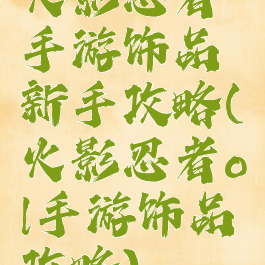 火影忍者
手游饰品
新手攻略(
火影忍者。
|手游饰品
攻略)